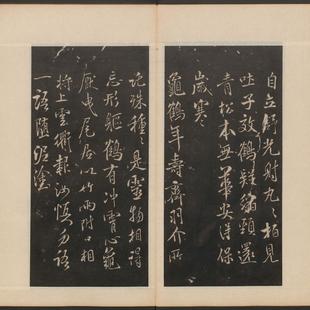 自立舒光射丸〻柏見
吐子效鶴疑縮頸還
青松本無華安得保
歲寒
龜鶴年壽齊羽介所
託殊種〻是靈物相得
忘形軀鶴有沖霄心龜
厭曳尾居以竹兩附口相
將上雲衢報汝慎勿語
一語墮泥塗